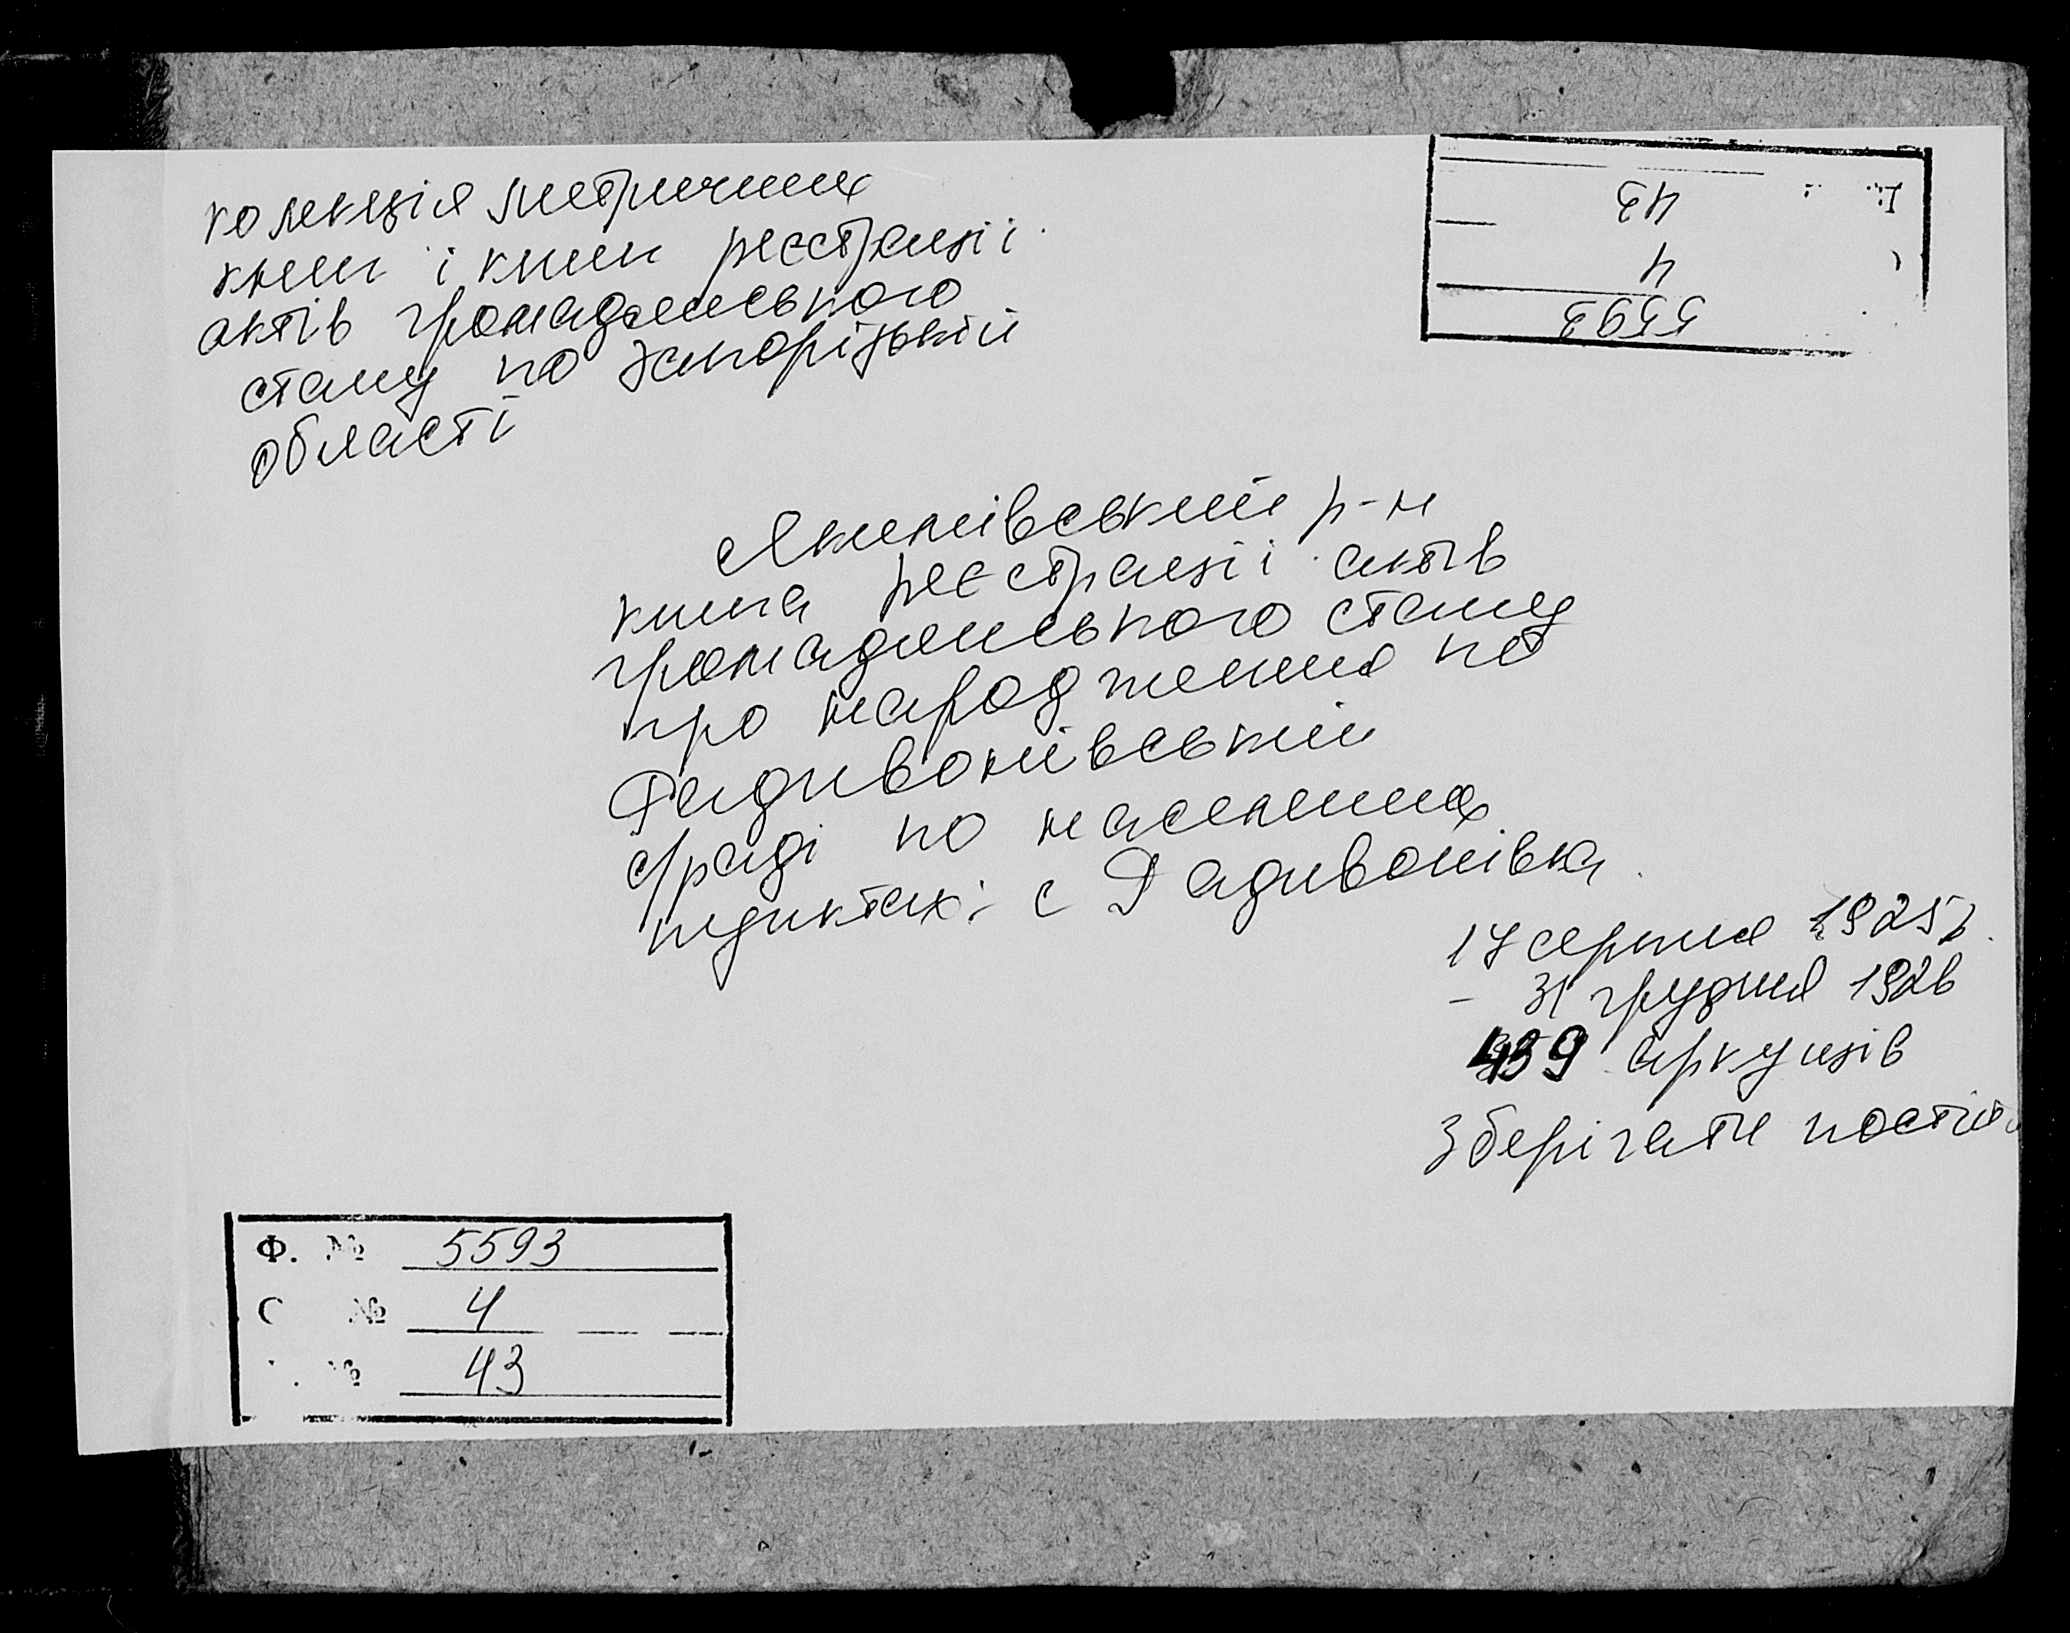 колекція метричних
книг і книг реєстрації
актів громадянського
стану по Запорізькій
області
5593
4
43
Якимівський р-н
книга реєстрації актів
громадянського стану
про народження по
Радивонівській
с/раді по населених
пунктах: с Радивонівка
17 серпня 1925 р.
- 31 грудня 1926
439 аркушів
Зберігати
Ф. № 5593
№ 4
№ 43